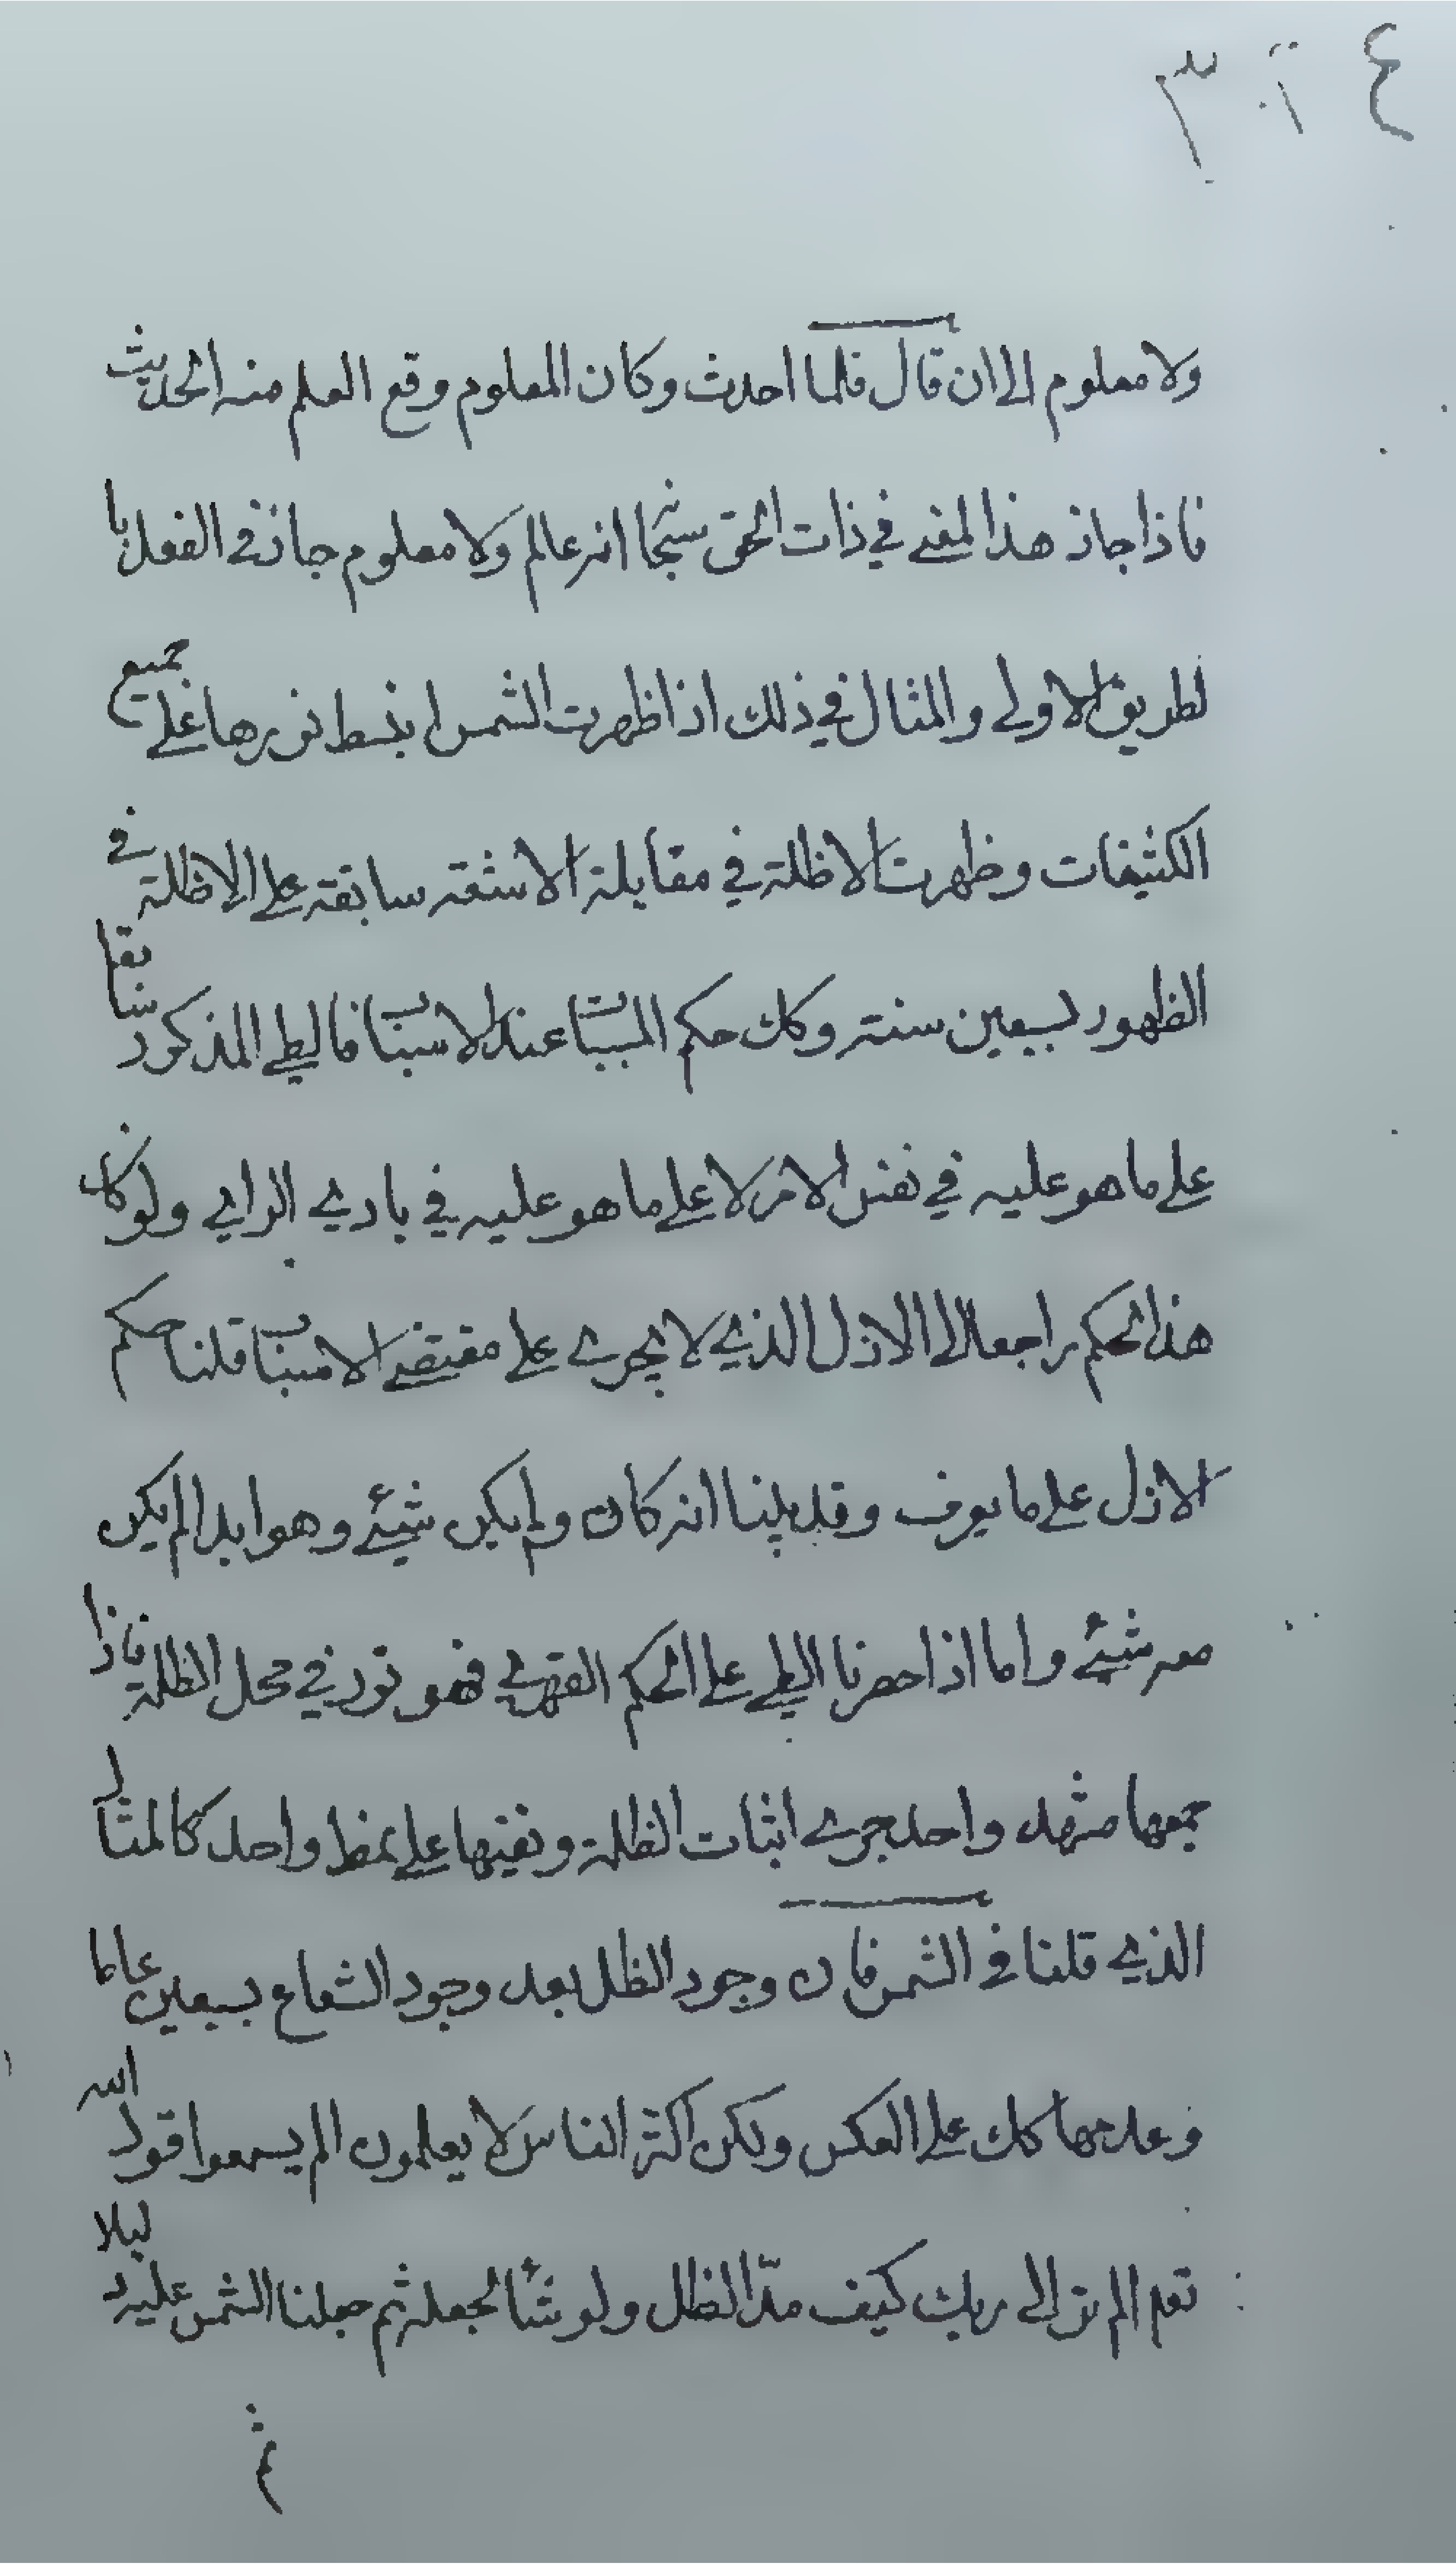 ولا معلوم الى ان قال فلما احدث وكان المعلوم وقع العلم منه الحديث
فاذا جاز هذا المعنى في ذات الحق سبحانه انه عالم ولا معلوم جاز في الفعل با
لطريق الاولى والمثال في ذلك اذا ظهرت الشمس انبسط نورها على جميع
الكثيفات وظهرت الاظلة في مقابلة الاشعة سابقة على الاظلة في
الظهور بسبعين سنة وكك حكم المسببات عند الاسباب فالطي المذكور سابقا
على ما هو عليه في نفس الامر لا على ما هو عليه في بادي الراي ولو كان
هذا الحكم راجعا الى الازل الذي لا يجري على مقتضى الاسباب قلنا حكم
الازل على ما يعرف وقد بينا انه كان ولم يكن شيئ وهو ابدا لم يكن
معه شيئ واما اذا حصرنا الطي على الحكم القهري فهو نور في محل الظلمة فاذا
جمعها مشهد واحد جرى اثبات الظلمة ونفيها على نمط واحد كالمثال
الذي قلنا في الشمس فان وجود الظل بعد وجود الشعاع بسبعين عاما
وعدمها كك على العكس ولكن اكثر الناس لا يعلمون الم يسمعوا قول الله
تعم الم تر الى ربك كيف مدّ الظل ولو شئا لجعله ثم جعلنا الشمس عليه دليلا
ثم